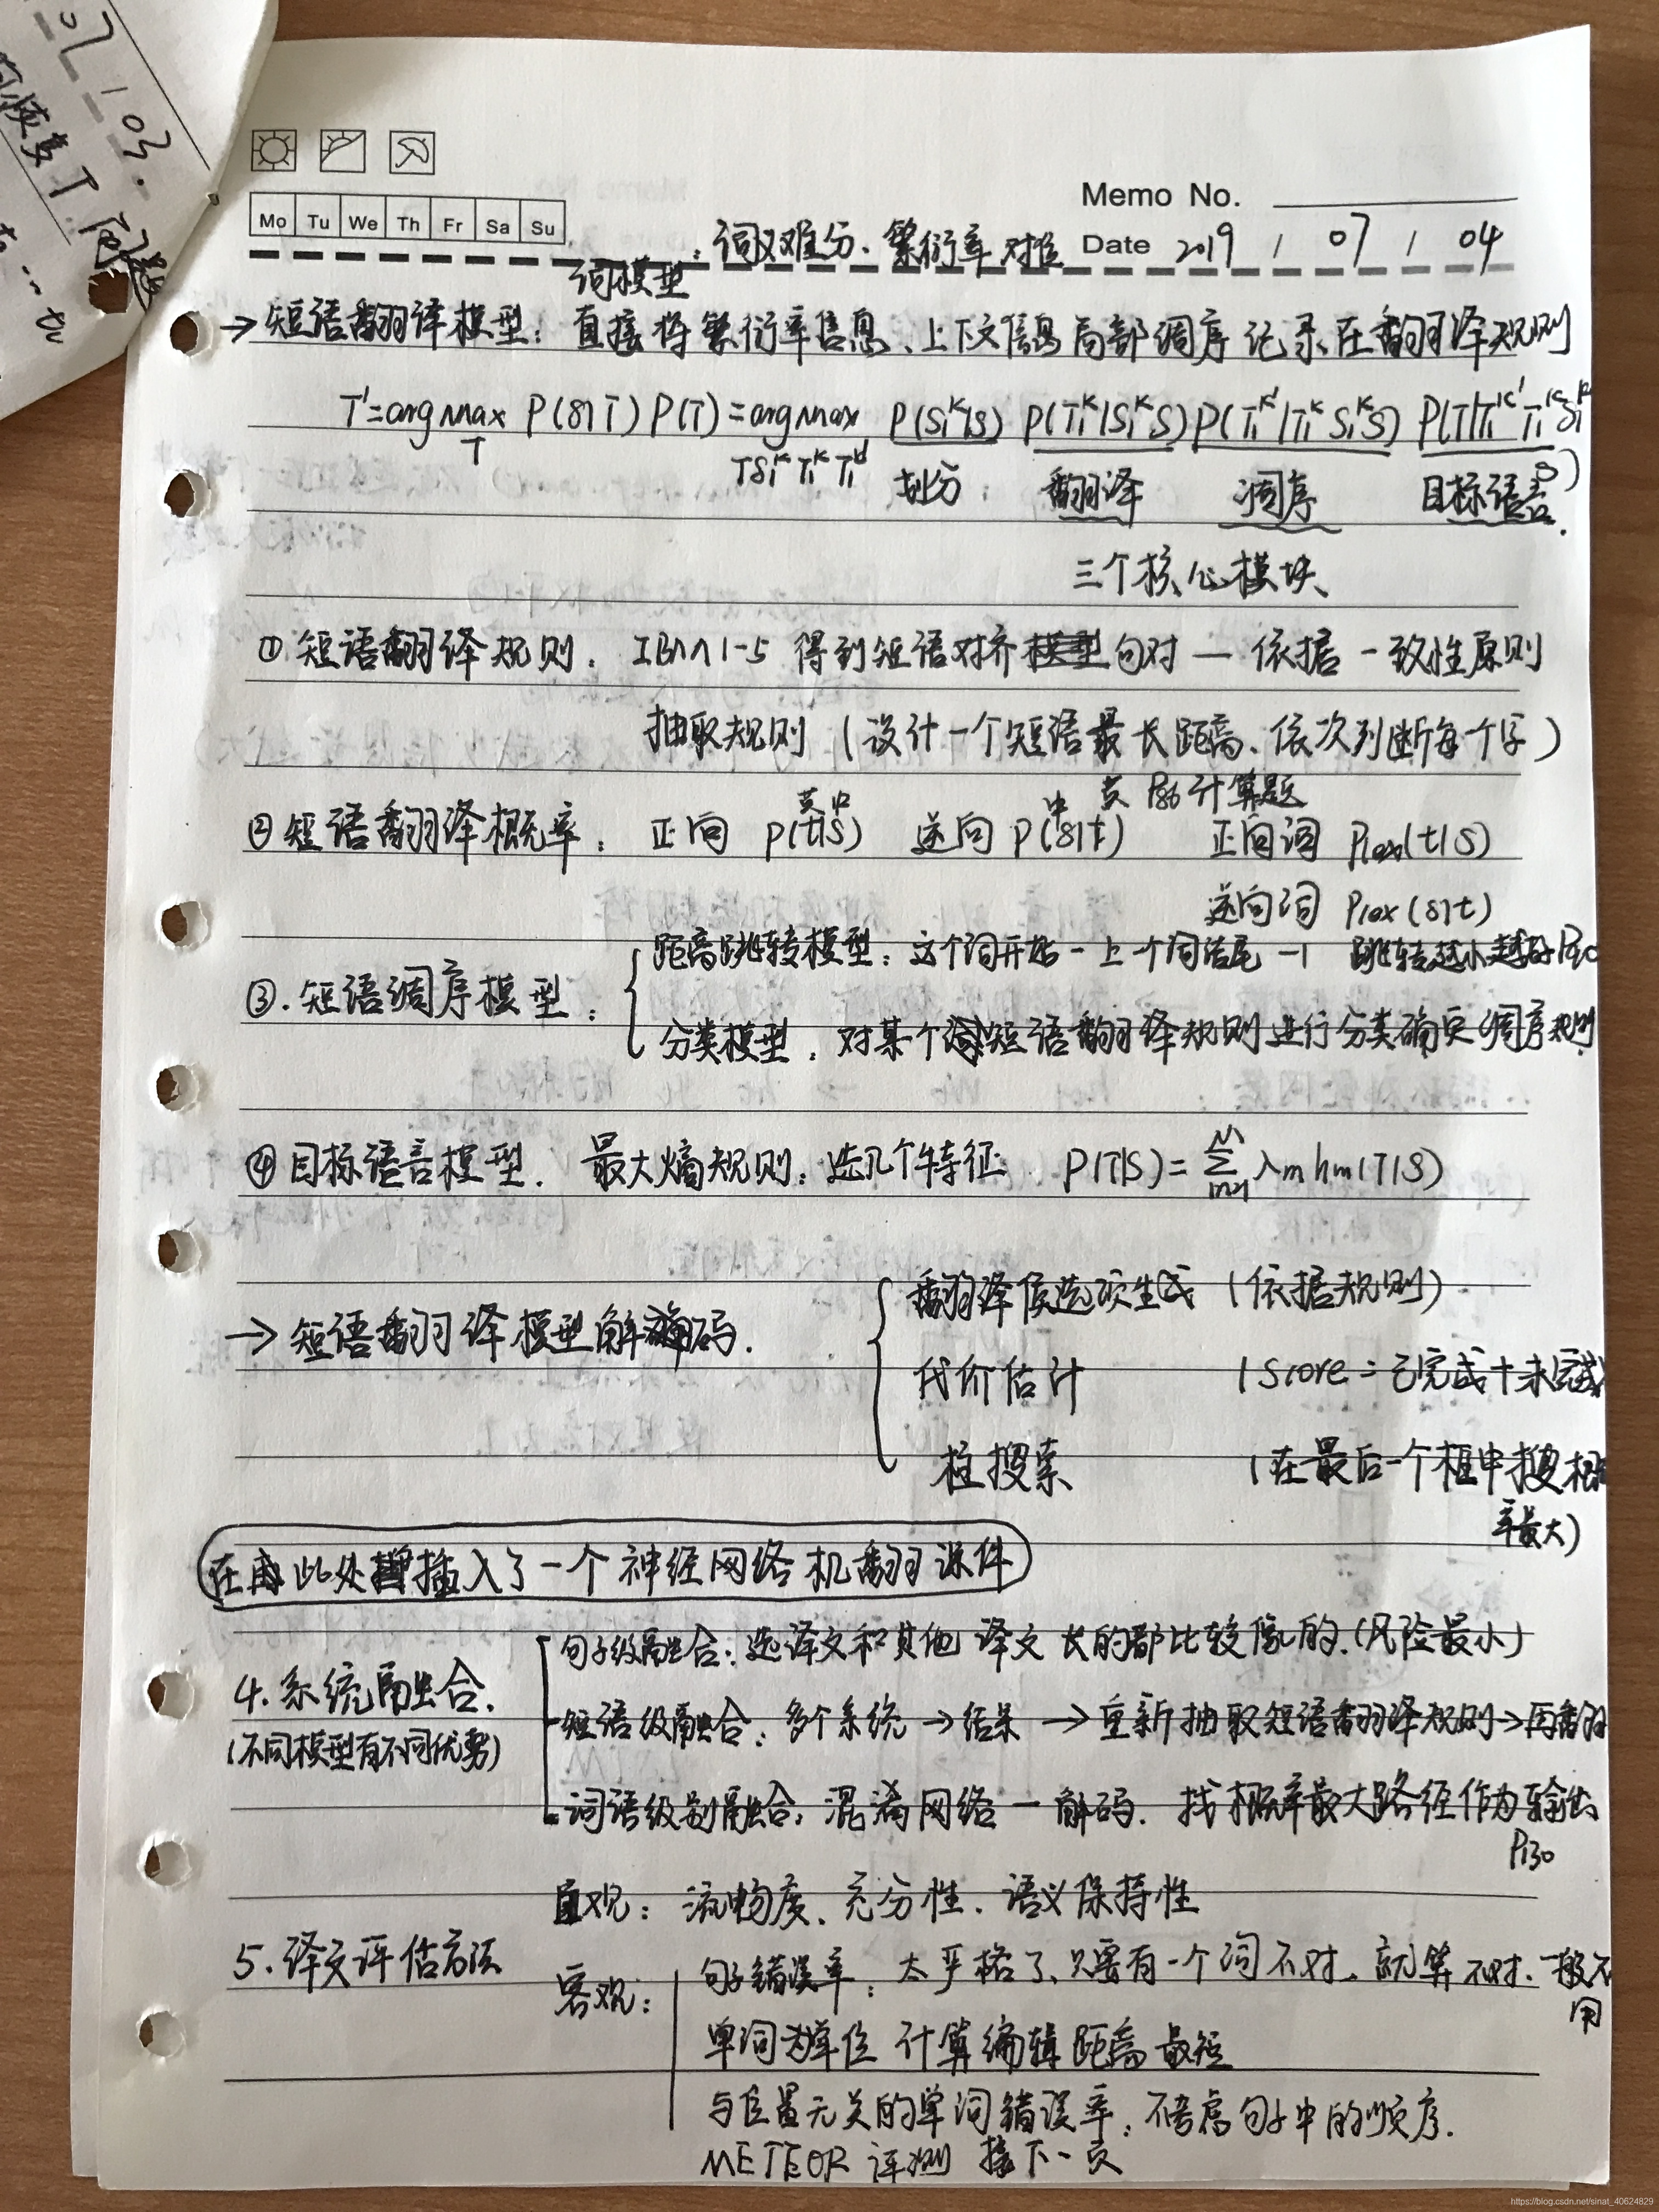 07 / 03.
Memo No.
Mo Tu We Th Fr Sa Su
词模型：词义难分、繁衍率对位
Date 2019 / 07 / 04
→短语翻译模型：直接将繁衍率信息、上下文信息局部调序记录在翻译规则
T'=argmax P(S|T) P(T) = argmax P(S₁ᴷ|S) P(T₁ᴷ|S₁ᴷS) P(T₁ᴷ'|T₁ᴷS₁ᴷS) P(T|T₁ᴷ'T₁ᴷS₁ᴷ
T TS₁ᴷT₁ᴷT₁ᴷ' 划分 翻译 调序 目标语言 S)
三个核心模块
① 短语翻译规则：IBM1-5 得到短语对齐句对 — 依据一致性原则
抽取规则（设计一个短语最长距离、依次判断每个字）
英中 中 英 P86 计算题
② 短语翻译概率：正向 P(t|S) 逆向 P(S|t) 正向词 Plex(t|S)
逆向词 Plex(S|t)
距离跳转模型：这个词开始-上个词结尾-1 跳转越小越好
③.短语调序模型：
分类模型，对某个短语翻译规则进行分类确定调序规则
④目标语言模型. 最大熵规则：选几个特征 P(T|S)=∑ᴹₘ₌₁ λm hm(T|S)
翻译候选项生成（依据规则）
→ 短语翻译模型解码.
代价估计 （Score = 已完成+未完成
柱搜索 （在最后一个框中搜概
率最大）
在此处插入了一个神经网络机翻课件
句子级融合：选译文和其他译文长的都比较像的.（风险最小）
4.系统融合.
短语级融合：多个系统→结果→重新抽取短语翻译规则→再翻
（不同模型有不同优势）
词语级别融合：混淆网络—解码. 找概率最大路径作为输出
P130
直观：流畅度、充分性、语义保持性
5.译文评估方法
客观：句子错误率：太严格了、只要有一个词不对、就算不对、一般不
用
单词为单位 计算编辑距离 最短
与位置无关的单词错误率：不考虑句子中的顺序.
METEOR 评测 接下一页
https://blog.csdn.net/sinat_40624829